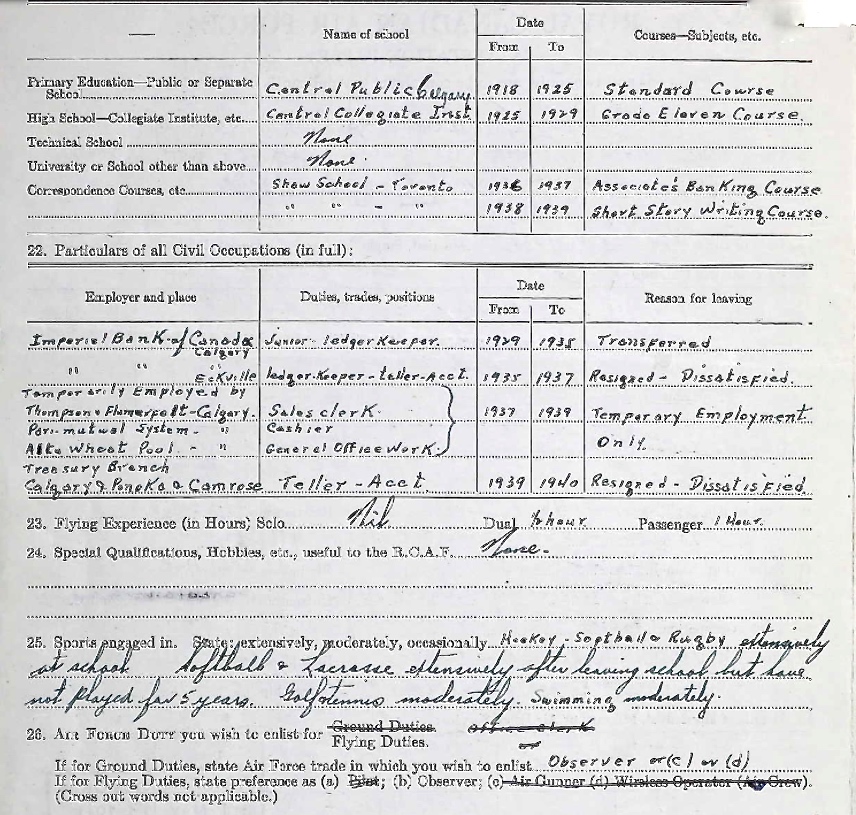 Date
— Name of school From To Courses—Subjects, etc.
Primary Education—Public or Separate
School Central Public Calgary 1918 1925 Standard Course
High School—Collegiate Institute, etc. Central Collegiate Inst. 1925 1929 Grade Eleven Course.
Technical School None
University or School other than above None.
Correspondence Courses, etc. Shaw School - Toronto 1936 1937 Associate's Banking Course
" " - " 1938 1939 Short Story Writing Course.
22. Particulars of all Civil Occupations (in full):
Date
Employer and place Duties, trades, positions From To Reason for leaving
Imperial Bank of Canada Junior-ledger Keeper. 1929 1935 Transferred
Calgary
" " Eckville ledger-Keeper-teller-Acct. 1935 1937 Resigned - Dissatisfied.
Temporarily Employed by
Thompson & - Calgary. Sales clerk. 1937 1939 Temporary Employment
Pari-mutual System - " Cashier
Only.
Alta Wheat Pool. - " General Office Work.
Treasury Branch
Calgary & Ponoka & Camrose Teller - Acct. 1939 1940 Resigned - Dissatisfied.
23. Flying Experience (in Hours) Solo Nil Dual ½ hour Passenger 1 Hour.
24. Special Qualifications, Hobbies, etc., useful to the R.C.A.F. None.
25. Sports engaged in. State: extensively, moderately, occasionally Hockey - Softball & Rugby extensively
at school Softball & Lacrosse extensively after leaving school but have
not played for 5 years. Golf & tennis moderately. Swimming moderately.
26. Air Force Duty you wish to enlist for Ground Duties. Office clerk
Flying Duties. or
If for Ground Duties, state Air Force trade in which you wish to enlist Observer or (c) or (d)
If for Flying Duties, state preference as (a) Pilot; (b) Observer; (c) Air Gunner (d) Wireless Operator (Air Crew).
(Cross out words not applicable.)